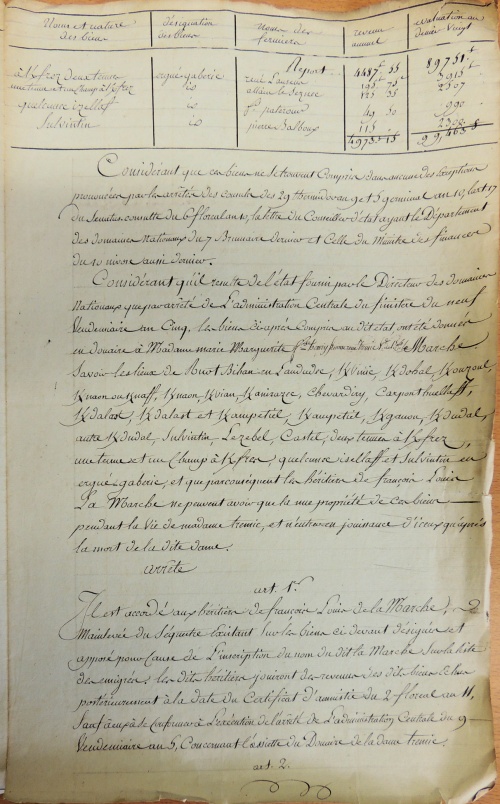 Noms et nature des biens | désignation des biens | Noms des fermiers | revenu annuel | évaluation au denier vingt
Report 4487 . 55 89751 .
à Kfroz deux tenues ergue-gaberie 195 . 75 3915 .
une tenue et un champ à Kfrez id 125 . 35 2507
quelennec izellaff id 49 . 50 990 .
Sulvintin id pierre Balbous 115 . 2302 .
4973 . 15 99,465 . 5
Considérant que ces biens ne se trouvent Compris dans aucune des Exceptions
prononcées par les arrêtés des consuls des 29 thermidor an 9 et 3 germinal an 10, l'art 17
du Senatus consulte du 6 floreal an 10, la lettre du Conseiller d'état ayant le Département
des domaines Nationaux du 7 Brumaire dernier et Celle du Ministre des finances
du 10 nivose aussi dernier.
Considérant qu'il résulte de l'état fourni par le Directeur des domaines
Nationaux que par arrêté de L'administration Centrale du finistère du neuf
Vendemiaire an Cinq, les biens ci après Compris au dit état ont été donnés
en douaire à Madame marie Marguerite La Marche
Savoir les lieux de Runot Bihan en Landudec, Kvuic, Kdohal, Kouroul,
Knaon ou Knaff, Knaon, Kvian, Kanisrazec, Chevardoy, Carpont huellaff,
Kdalae, Kdalast et Kampetil, Kampetil, Kganou, Kdudal,
autre Kdudal, Sulvintin, Lezebel, Castel, deux tenues à Kfroz,
une tenue et un Champ à Kfrez, quelennec isellaff et Sulvintin en
ergué-gaberie, et que par conséquent les héritiers de françois Louis
La Marche ne peuvent avoir que la nue propriété de ces biens
pendant la Vie de madame tremic, et n'entrer en jouissance d'iceux qu'après
la mort de la dite dame.
arrête
art. 1er
Il est accordé aux héritiers de françois Louis de la Marche,
Mainlevée du Séquestre Existant Sur les biens ci devant désignés et
apposé pour Cause de L'inscription du nom du dit la Marche Sur la liste
des emigrés les dits héritiers jouiront des revenus des dits biens échus
postérieurement à la date du Certificat d'amnistie du 2 floreal an 11,
Sauf à eux à se conformer à L'exécution de l'arrêté de L'administration Centrale du 9
Vendemiaire an 5, Concernant l'assiette du Douaire de la dame tremic.
art. 2.